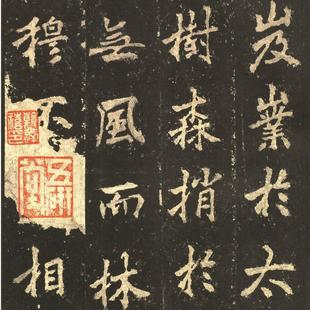 岌嶪於太
樹森捎於
無風而林
穆不相